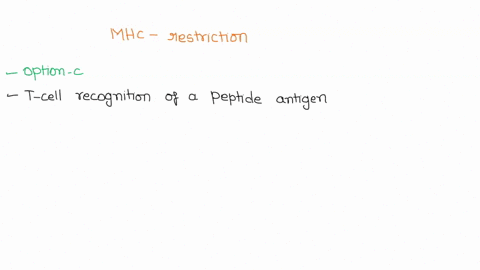 MHC - restriction
- option-c
- T-cell recognition of a peptide antigen